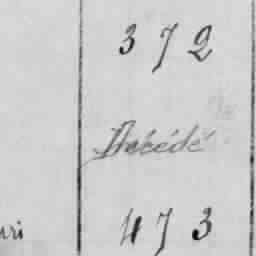 372
Décédé
uri 473